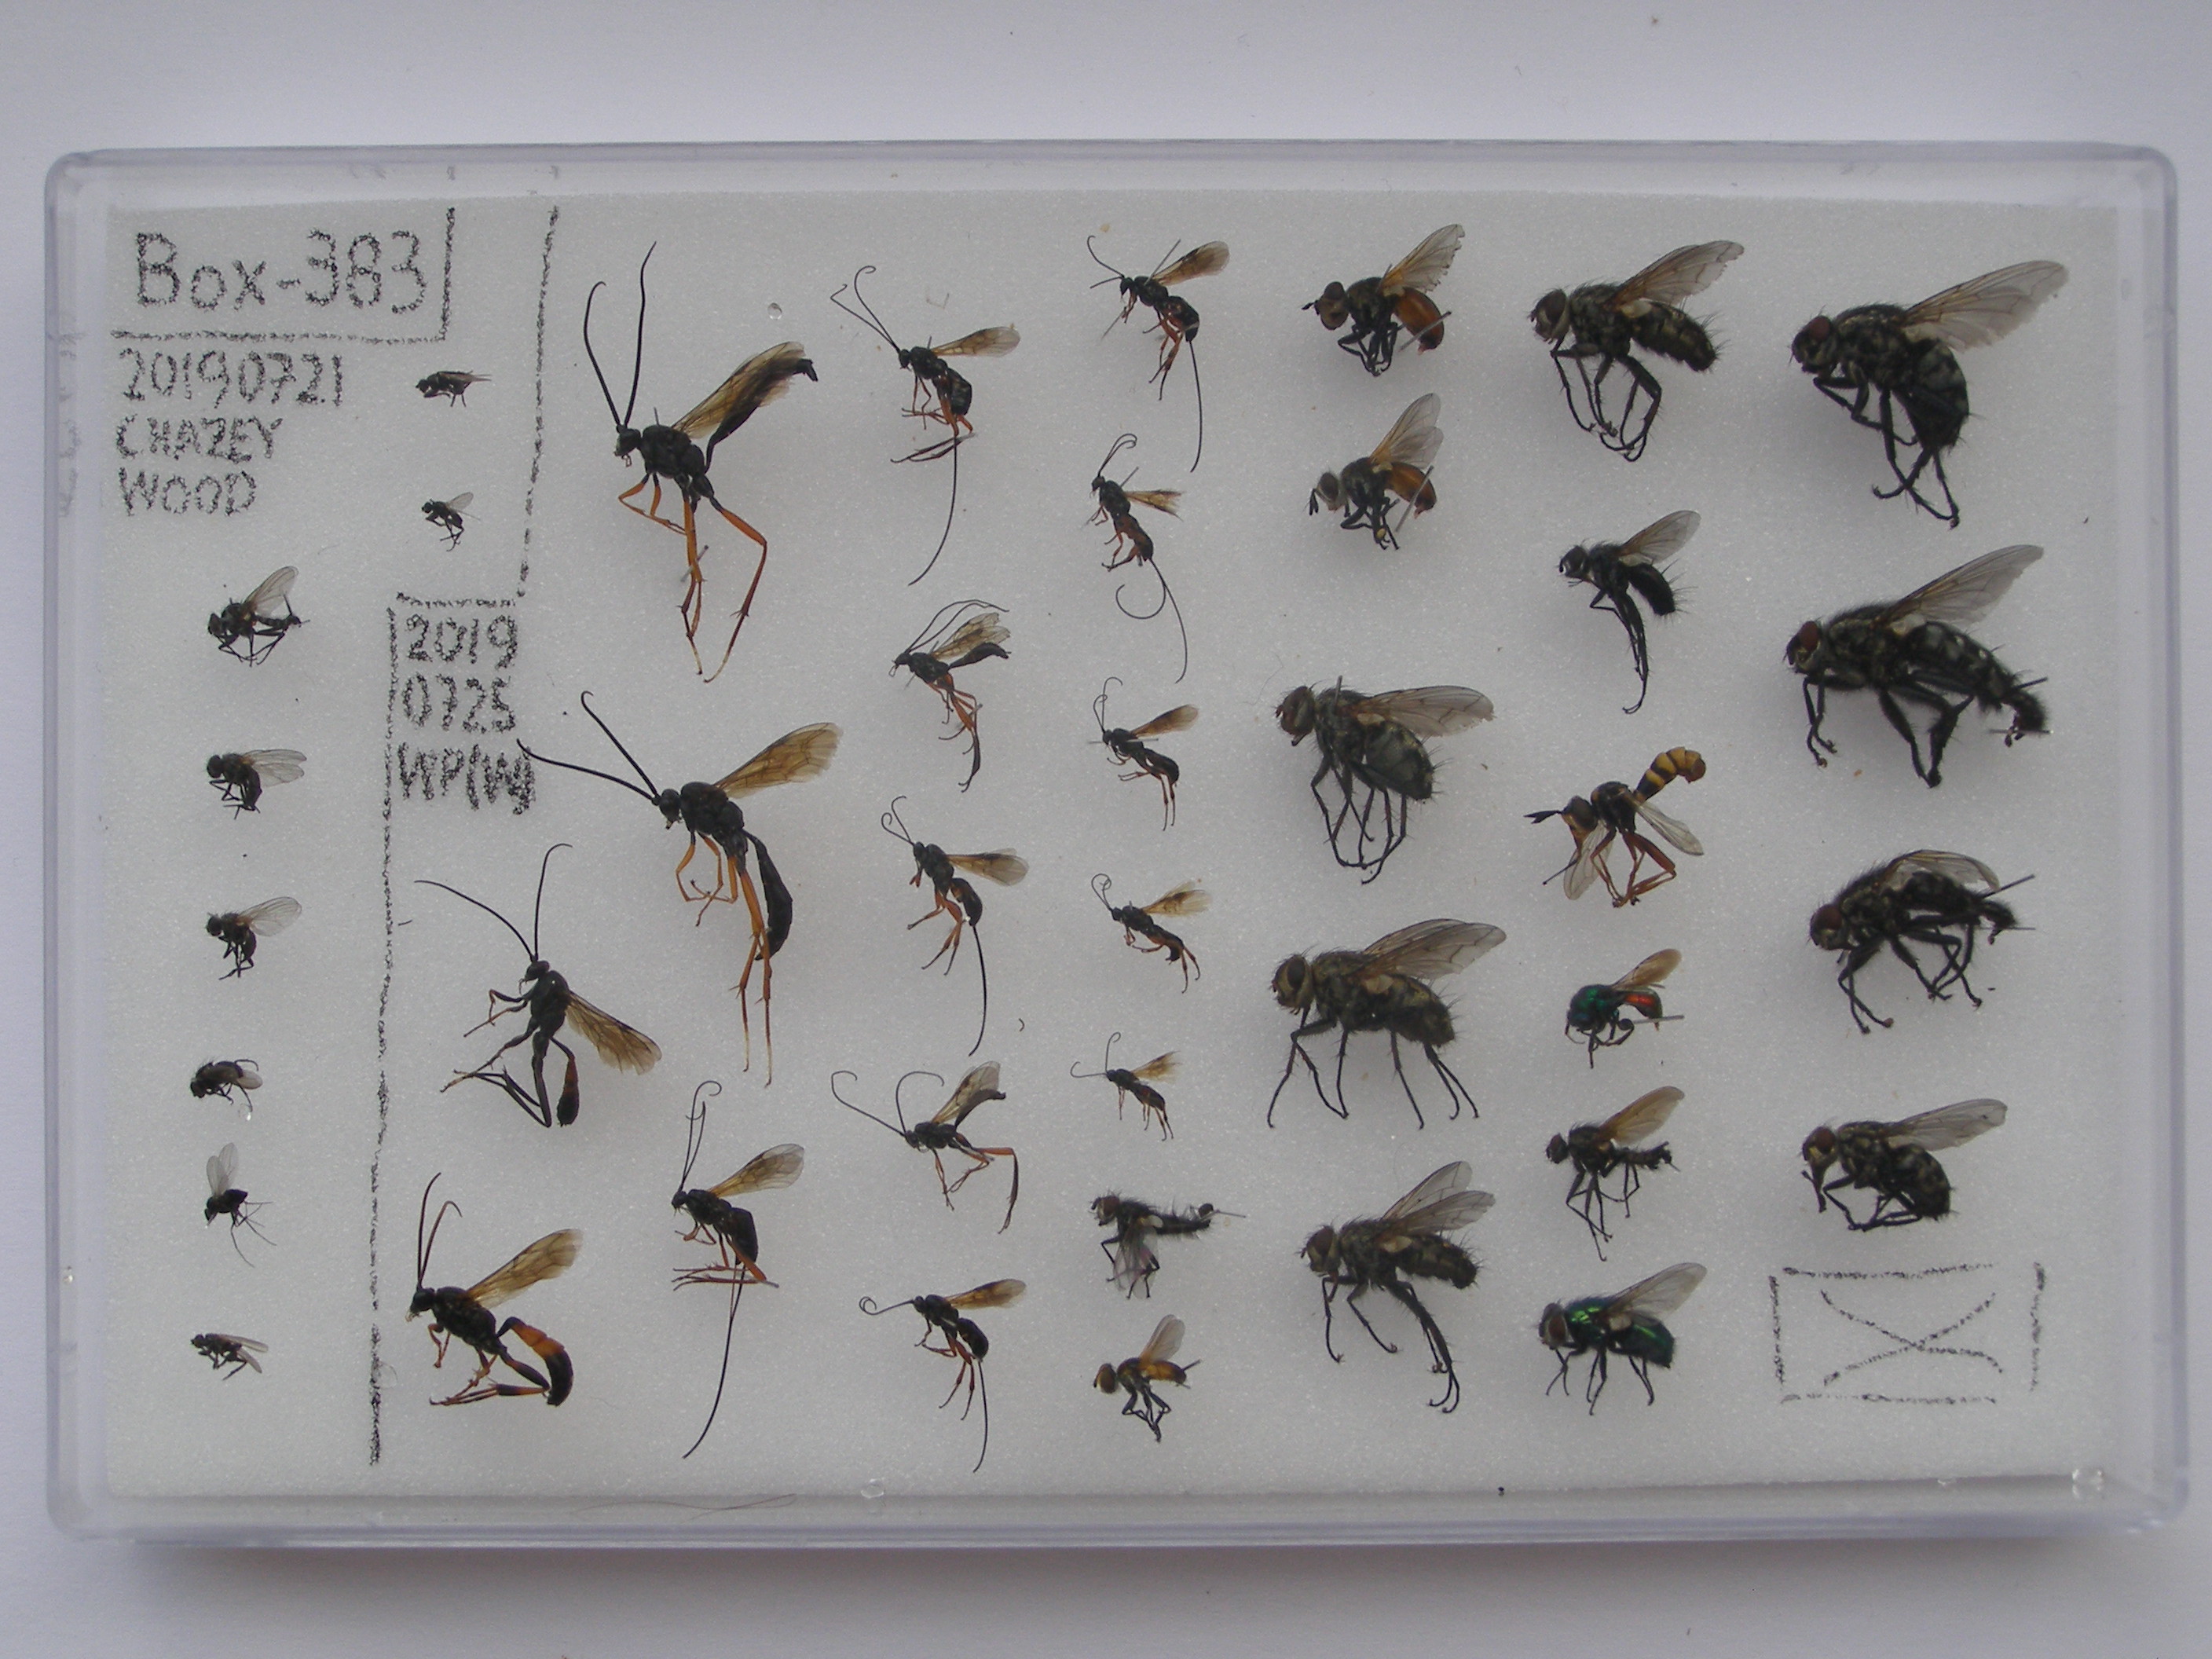 Box-383
20190721
CHAZEY
WOOD
2019
0725
WP(W)